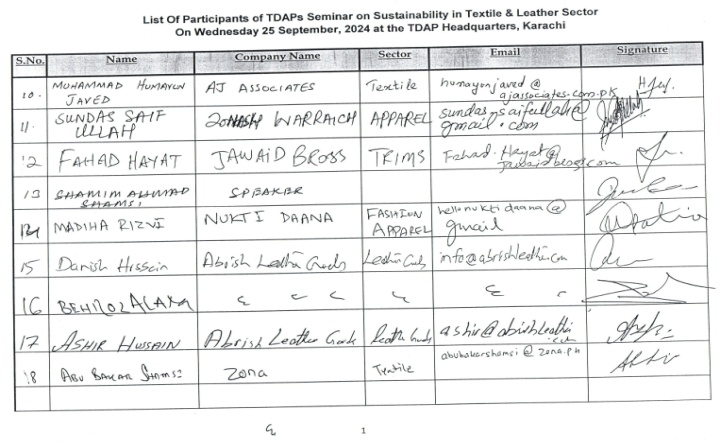 List Of Participants of TDAPs Seminar on Sustainability in Textile & Leather Sector
On Wednesday 25 September, 2024 at the TDAP Headquarters, Karachi
S.No. Name Company Name Sector Email Signature
10. MUHAMMAD HUMAYUN JAVED AJ ASSOCIATES Textile humayonjaved@ajassociates.com.pk
11. SUNDAS SAIF ULLAH WARRAICH APPAREL sundas saifullah@gmail.com
12 FAHAD HAYAT JAWAID BROSS TRIMS Fahad.Hayat@
13 SHAMIM AHMAD SHAMSI SPEAKER
14 MADIHA RIZVI NUKTI DAANA FASHION APPAREL hellonuktidaana@gmail
15 Danish Hussain Abrish Leather Goods Leather Goods info@abrishleather.com
16 BEHROZ
17 ASHIR HUSSAIN Abrish Leather Goods Leather Goods ashir@abrishleather.com
18 ABU BAKAR SHAMSI ZONA Textile abubakarshamsi@zona.pk
1